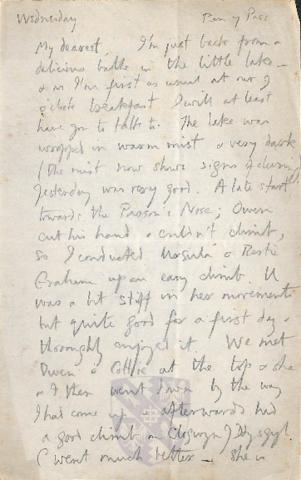 Wednesday Pen y Pass
My dearest, I'm just back from a
delicious bathe in the little lake –
& as I'm first as usual at our 9
o'clock breakfast I will at least
have you to talk to. The lake was
wrapped in warm mist & very dark
(the mist now shows signs of clearing)
Yesterday was very good. A late start
towards the Parson's Nose; Owen
cut his hand & couldn't climb,
so I conducted Ursula &
Graham up an easy climb. U
was a bit stiff in her movements
but quite good for a first day &
thoroughly enjoyed it. We met
Owen & at the top & she
& I then went down by the way
I had come up & afterwards had
a good climb on Clogwyn y
(went much better – She is